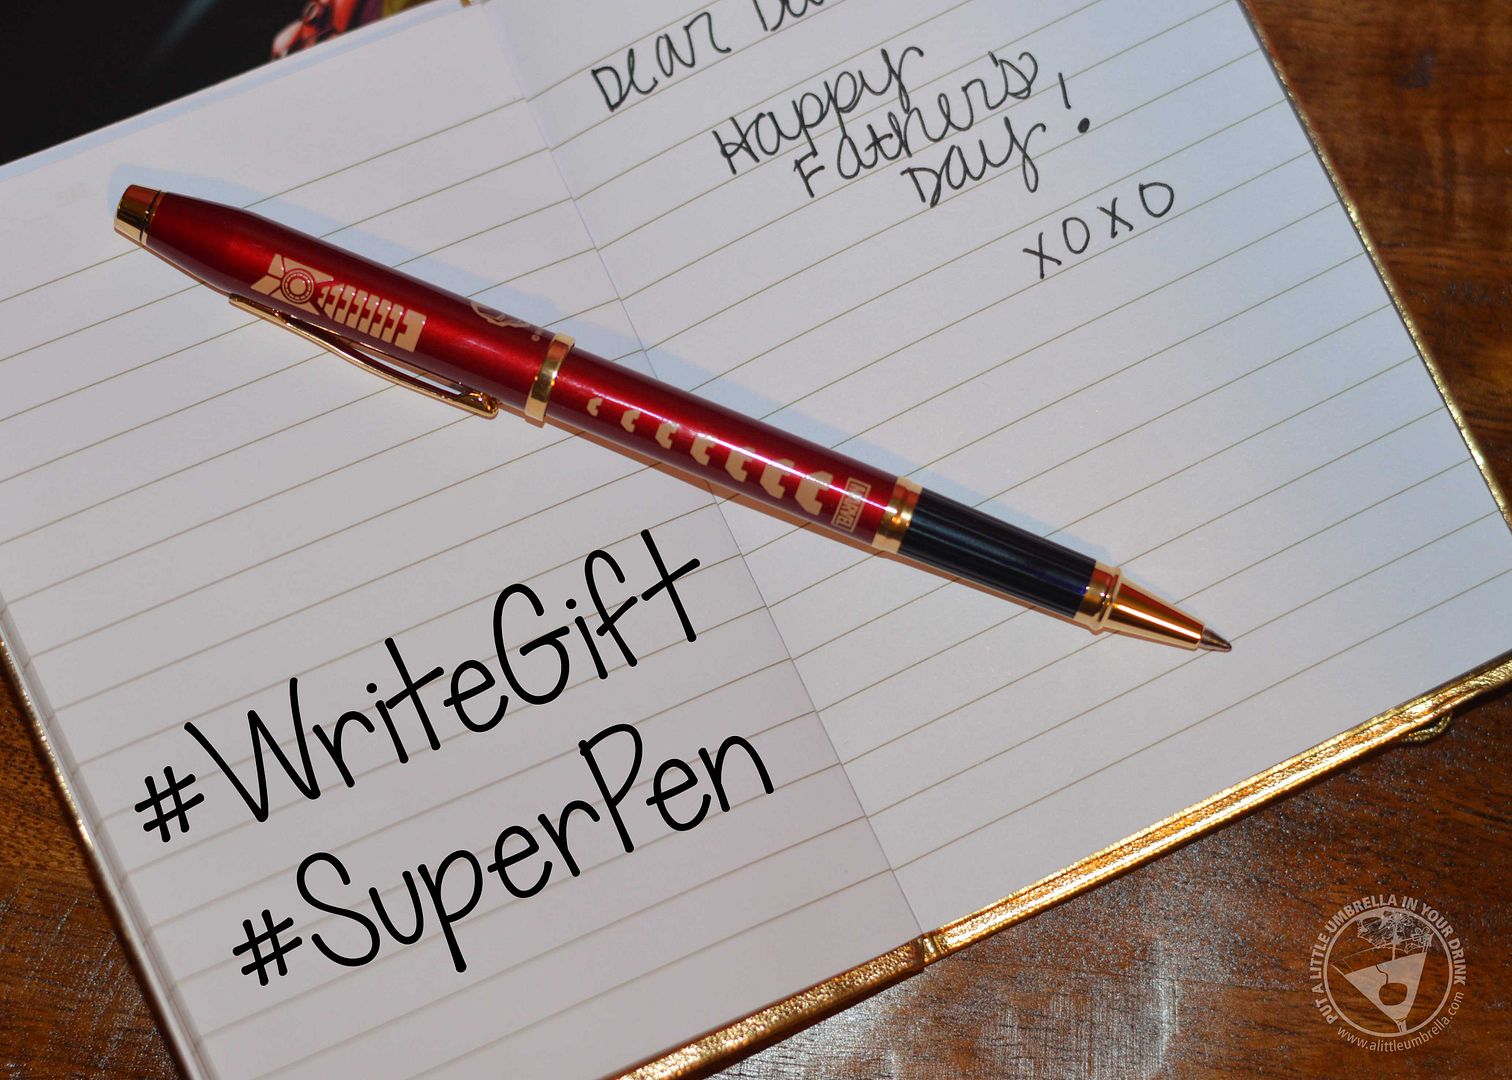 Dear
Happy
Father's
Day!
XOXO
#WriteGift
#SuperPen
PUT A LITTLE UMBRELLA IN YOUR DRINK
www.alittleumbrella.com